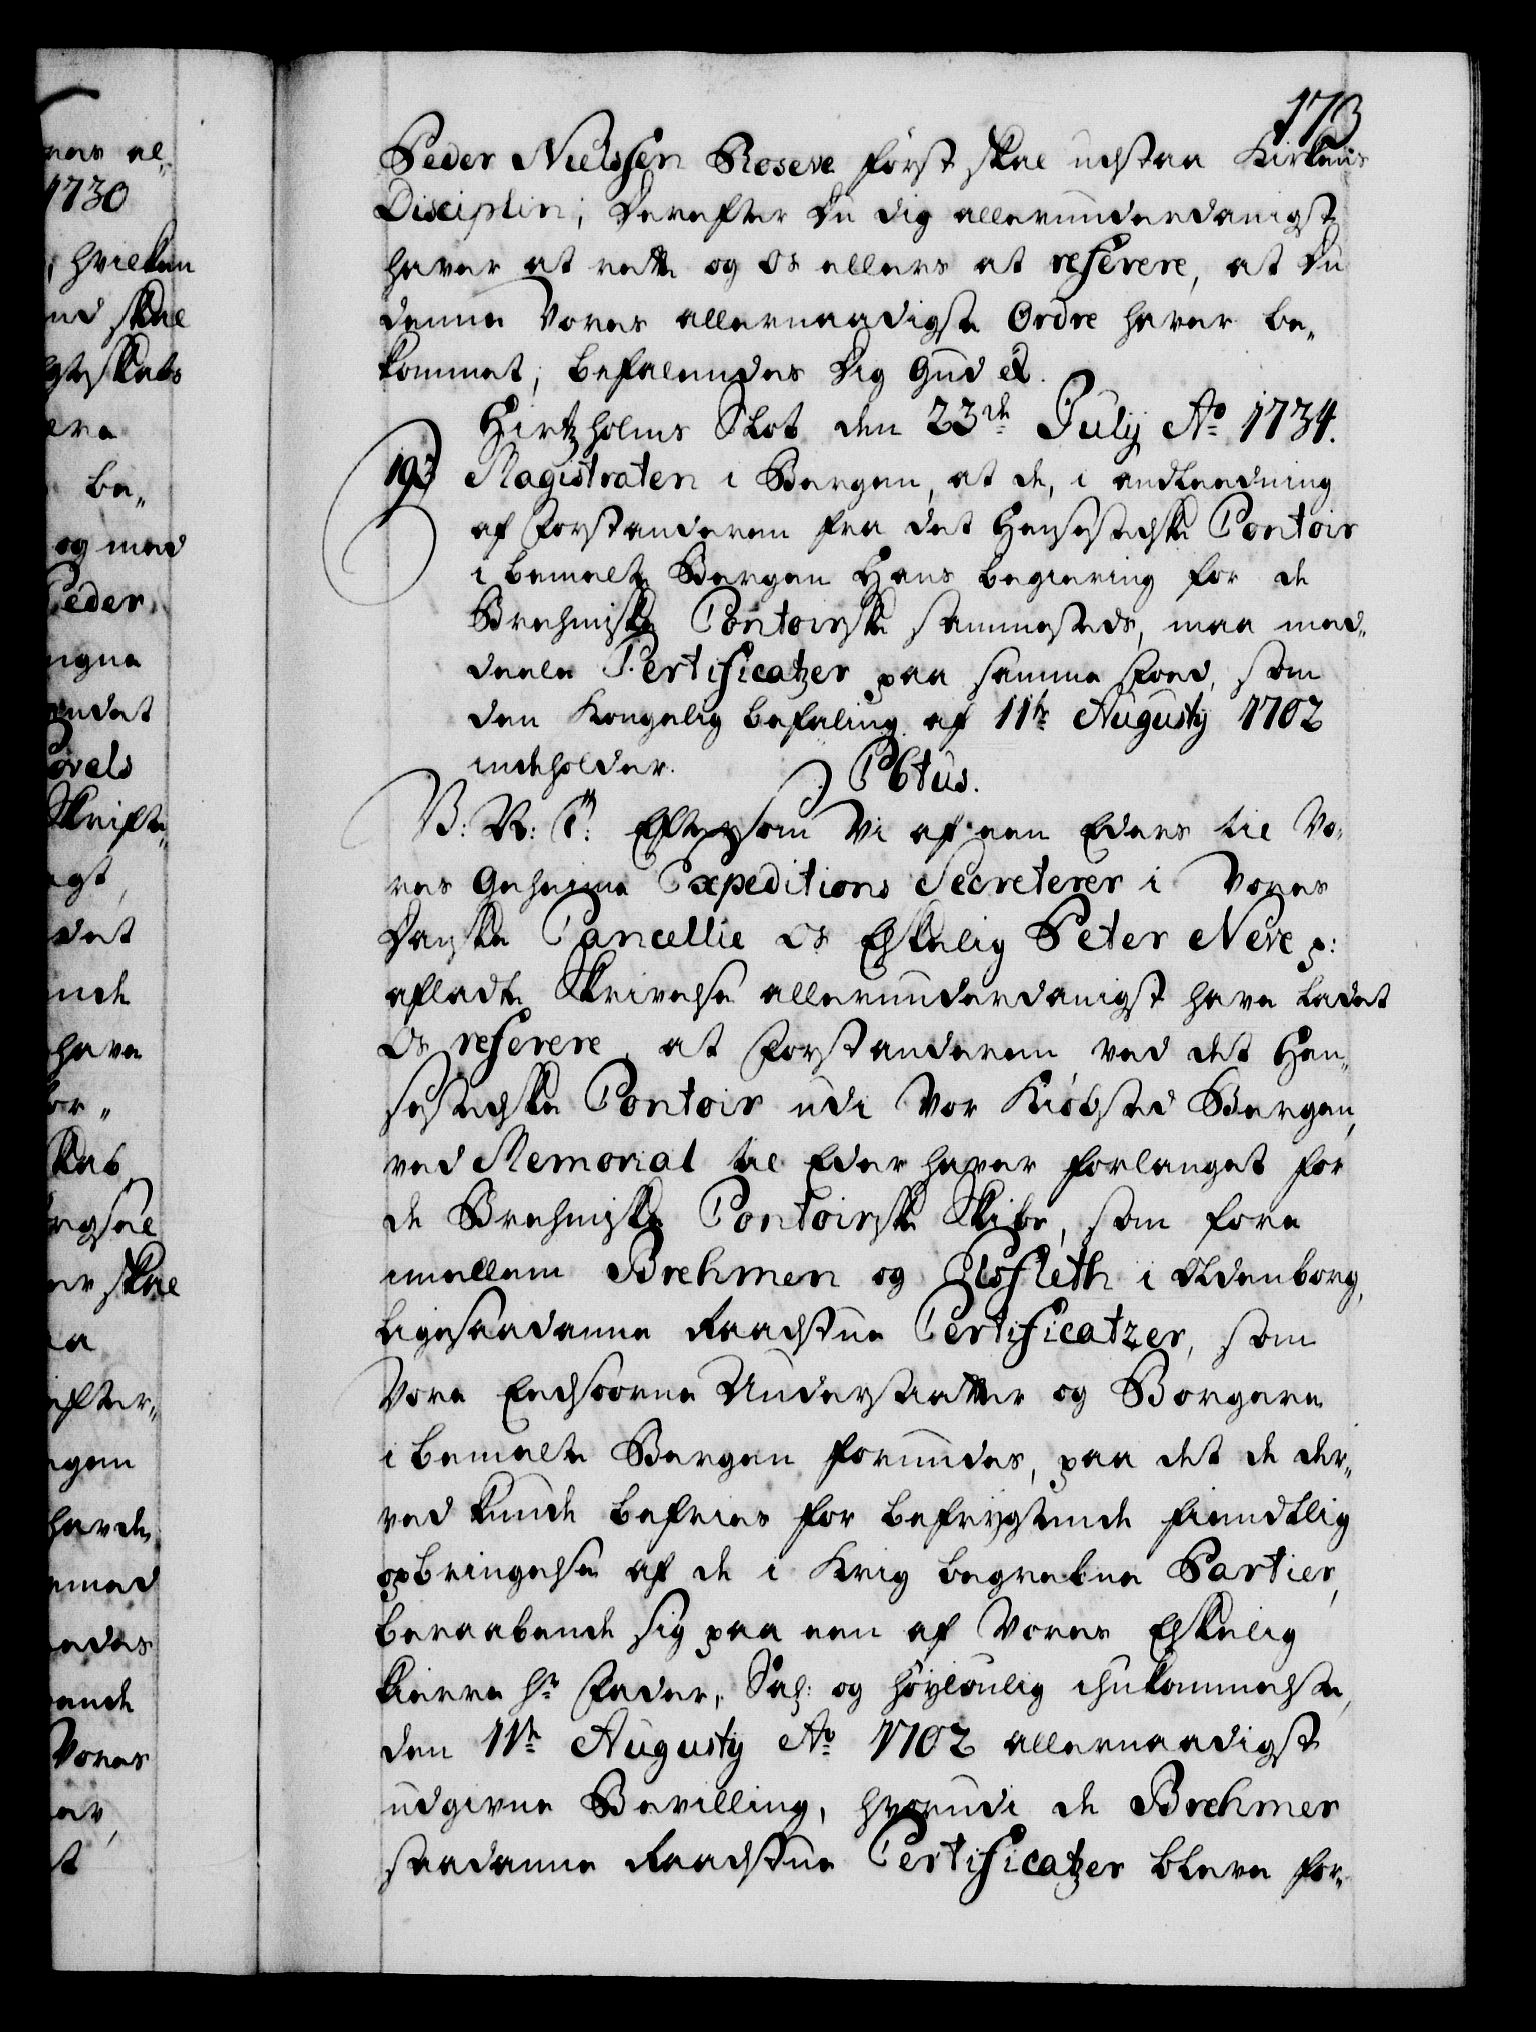 173
Peder Nielssen Roseve först skal udstaa Kirkens
Disciplin; Derefter Du dig allerunderdanigst
haver at rette og os ellers at referere, at Du
denne Vores allernaadigste Ordre haver be-
kommet, befalendes Dig Gud &.
Hirtzholms Slot den 23de July Ao 1734.
193 Magistraten i Bergen, at de, i andleedning
af Forstanderen fra det Hensestedske Contoir
i bemelte Bergen Hans begiering for de
Brehmiske Contoirske sammesteds, maa med-
deele Certificatzer paa samme Foed, som
den Kongelig befaling af 11te Augusty 1702
indeholder.
C6tus.
V: R: T: Eftersom Vi af een Eders til Vo-
res Geheime Expeditions Secreterer i Vores
Danske Cancellie Os Elskelig Peter Neve p:
afladte Skrivelse allerunderdanigst have ladet
Os referere, at Forstanderen ved det Hen-
sestedske Contoir udi Vor Kiöbsted Bergen,
ved Memorial til Eder haver forlanget for
de Brehmiske Contoirske Skibe, som fare
imellem Brehmen og Elsfleth i Oldenborg,
ligesaadanne Raadstue Certificatzer, som
Vore Eedsoorne Understatter og Borgere
i bemelte Bergen forundes, paa det de der-
ved kunde befries for befrygtende fiendtlig
opbringelse af de i Krig begrebne Partier,
beraabende sig paa een af Vores Elskelig
kiere Hr Fader, Sal: og höyloulig ihukommelse,
den 11te Augusty Ao 1702 allernaadigst
udgivne Bevilling, hvorudi de Brehmer
saadanne Raadstue Certificatzer bleve for-
1730
hvilken
skal
be-
og med
Peder
Vores
have
skal